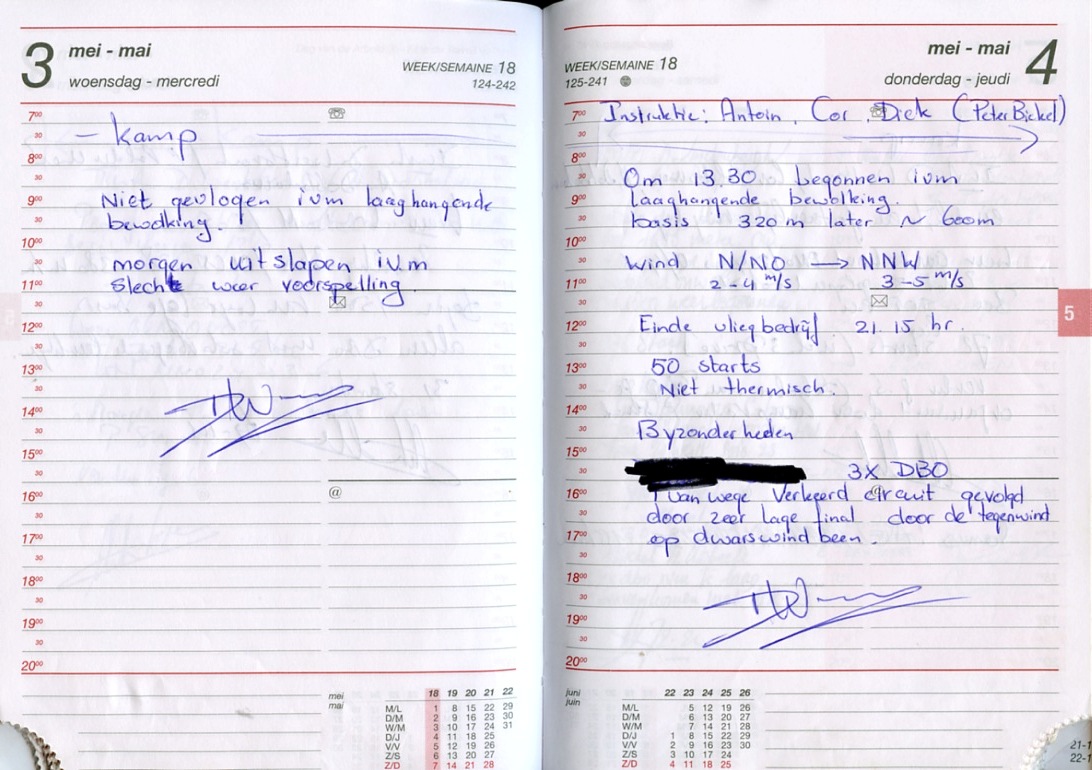 3
mei - mai
woensdag - mercredi
WEEK/SEMAINE 18
124-242
7⁰⁰
30
8⁰⁰
30
9⁰⁰
30
10⁰⁰
30
11⁰⁰
30
12⁰⁰
30
13⁰⁰
30
14⁰⁰
30
15⁰⁰
30
16⁰⁰
30
17⁰⁰
30
18⁰⁰
30
19⁰⁰
30
20⁰⁰
— kamp
Niet gevlogen ivm laaghangende
bewolking.
morgen uitslapen ivm
slecht weer voorspelling
@
mei
mai
18 19 20 21 22
M/L 1 8 15 22 29
D/M 2 9 16 23 30
W/M 3 10 17 24 31
D/J 4 11 18 25
V/V 5 12 19 26
Z/S 6 13 20 27
Z/D 7 14 21 28
WEEK/SEMAINE 18
125-241
mei - mai
donderdag - jeudi
4
7⁰⁰
30
8⁰⁰
30
9⁰⁰
30
10⁰⁰
30
11⁰⁰
30
12⁰⁰
30
13⁰⁰
30
14⁰⁰
30
15⁰⁰
30
16⁰⁰
30
17⁰⁰
30
18⁰⁰
30
19⁰⁰
30
20⁰⁰
Instruktie: Antoin, Cor, Dick (Peter Bickel)
Om 13.30 begonnen ivm
Laaghangende bewolking.
basis 320 m later ~ 600m
Wind N/NO → NNW
2-4 m/s 3-5 m/s
Einde vliegbedrijf 21.15 hr.
50 starts
Niet thermisch.
Byzonderheden
3X DBO
van wege Verkeerd circuit gevolgd
door zeer lage final door de tegenwind
op dwarswind been.
@
5
juni
juin
22 23 24 25 26
M/L 5 12 19 26
D/M 6 13 20 27
W/M 7 14 21 28
D/J 1 8 15 22 29
V/V 2 9 16 23 30
Z/S 3 10 17 24
Z/D 4 11 18 25
21-1
22-1